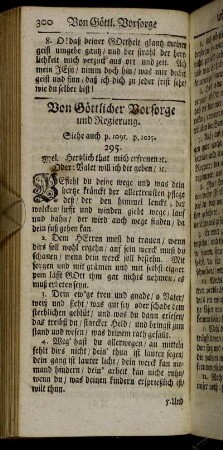 300 Von Göttl. Vorsorge
8. O! daß deiner GOttheit glantz meinen
geist umgebe gantz/ und der strahl der herr-
lichkeit mich verzuck' aus ort und zeit. Ach
mein JEsu/ nimm doch hin/ was mir decket
geist und sinn/ daß ich dich zu jeder frist sehe/
wie du selber bist!
Von Göttlicher Vorsorge
und Regierung.
Siehe auch p. 1091. p. 1025.
295.
Mel. Hertzlich thut mich erfreuen ec.
Oder: Valet will ich dir geben/ ec.
Befiehl du deine wege und was dein
hertze kränckt der allertreusten pflege
deß/ der den himmel lenckt; der
wolcken/ lufft und winden giebt wege/ lauf
und bahn der wird auch wege finden/ da
dein fuß gehen kan.
2. Dem HErren must du trauen/ wenn
dirs soll wohl ergehn/ auf sein werck must du
schauen/ wenn dein werck soll bestehn. Mit
sorgen und mit grämen und mit selbst eigner
pein läßt GOtt ihm gar nichts nehmen/ es
muß erbeten seyn.
3. Dein ew'ge treu und gnade/ o Vater/
weiß und sieht/ was gut sey oder schade dem
sterblichen geblüt/ und was du dann erlesen/
das treibst du/ starcker Held/ und bringst zum
stand und wesen/ was deinem rath gefällt.
4. Weg' hast du allerwegen/ an mitteln
fehlt dirs nicht/ dein' thun ist lauter segen/
dein gang ist lauter licht/ dein werck kan nie-
mand hindern/ dein' arbeit kan nicht ruhn/
wenn du/ was deinen kindern ersprießlich ist/
wilt thun.
5. Und